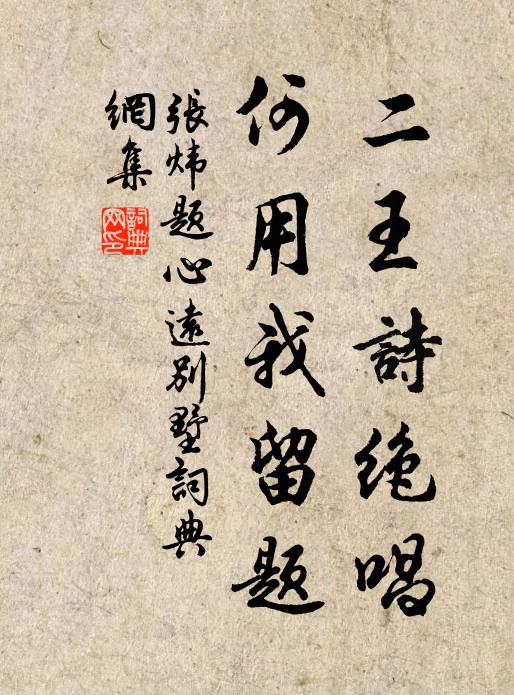 二王詩絶唱
何用我留題
張炜题心遠别墅詞典
網集
詞典
网印